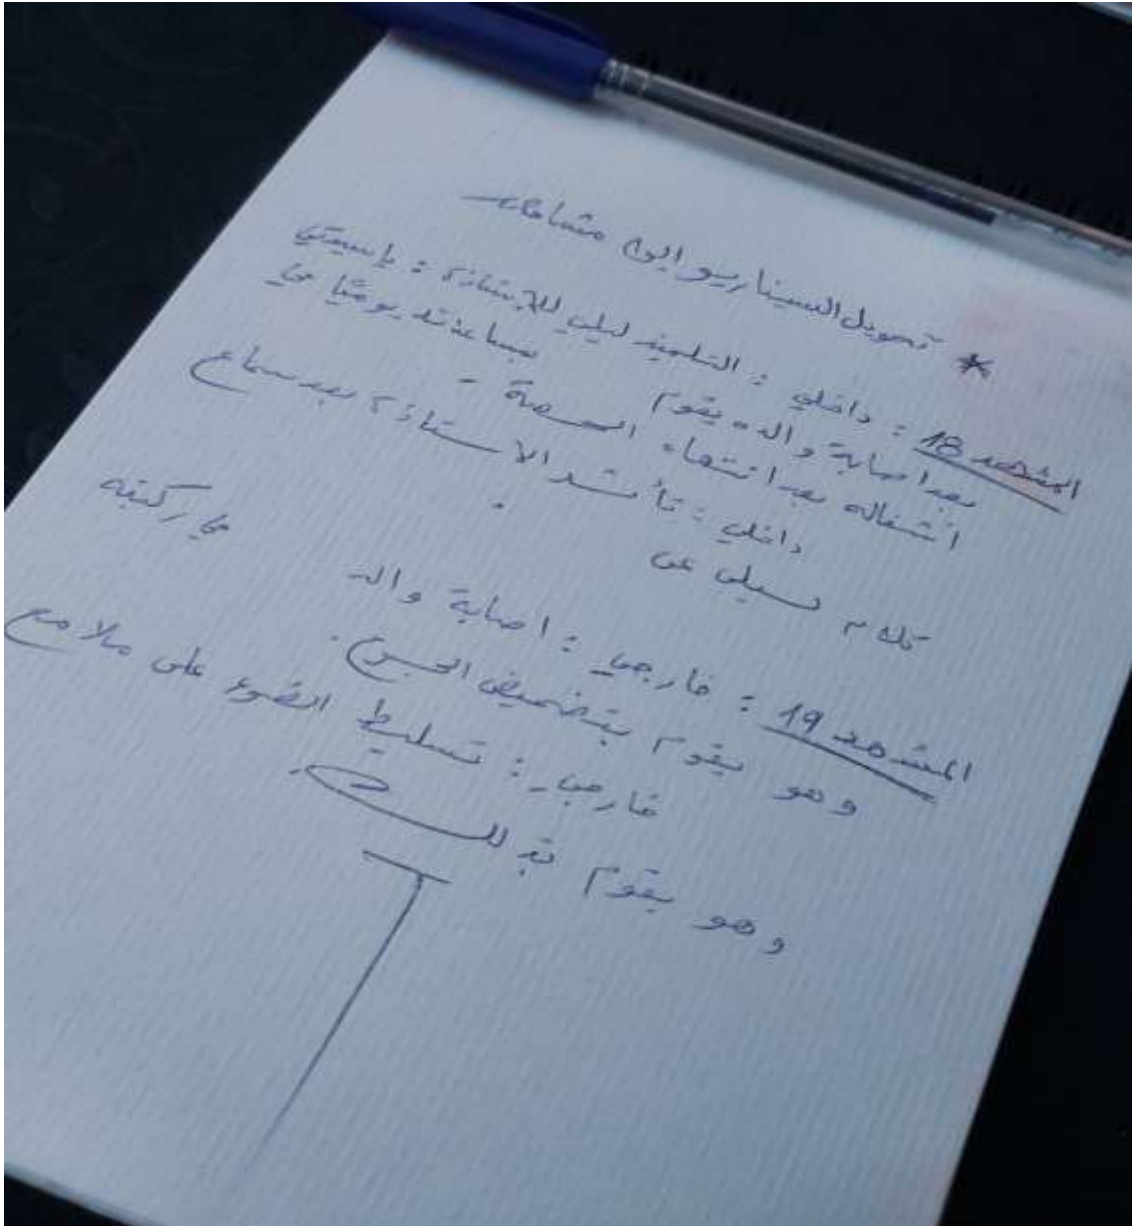 * تحويل السيناريو الى مشاهد
المشهد 18 : داخلي : التلميذ ليلي للأستاذة : يا سيدتي
بعد اصابة والده يقوم بمساعدته يوميًا في
انشغاله بعد انتهاء الحصة -
داخلي : تأثر الأستاذة بعد سماع
كلام ليلى عن
المشهد 19 : خارجي : اصابة والد في ركبته
وهو يقوم بتضميض الجرح.
خارجي : تسليط الضوء على ملامح
وهو يقوم بذلك.